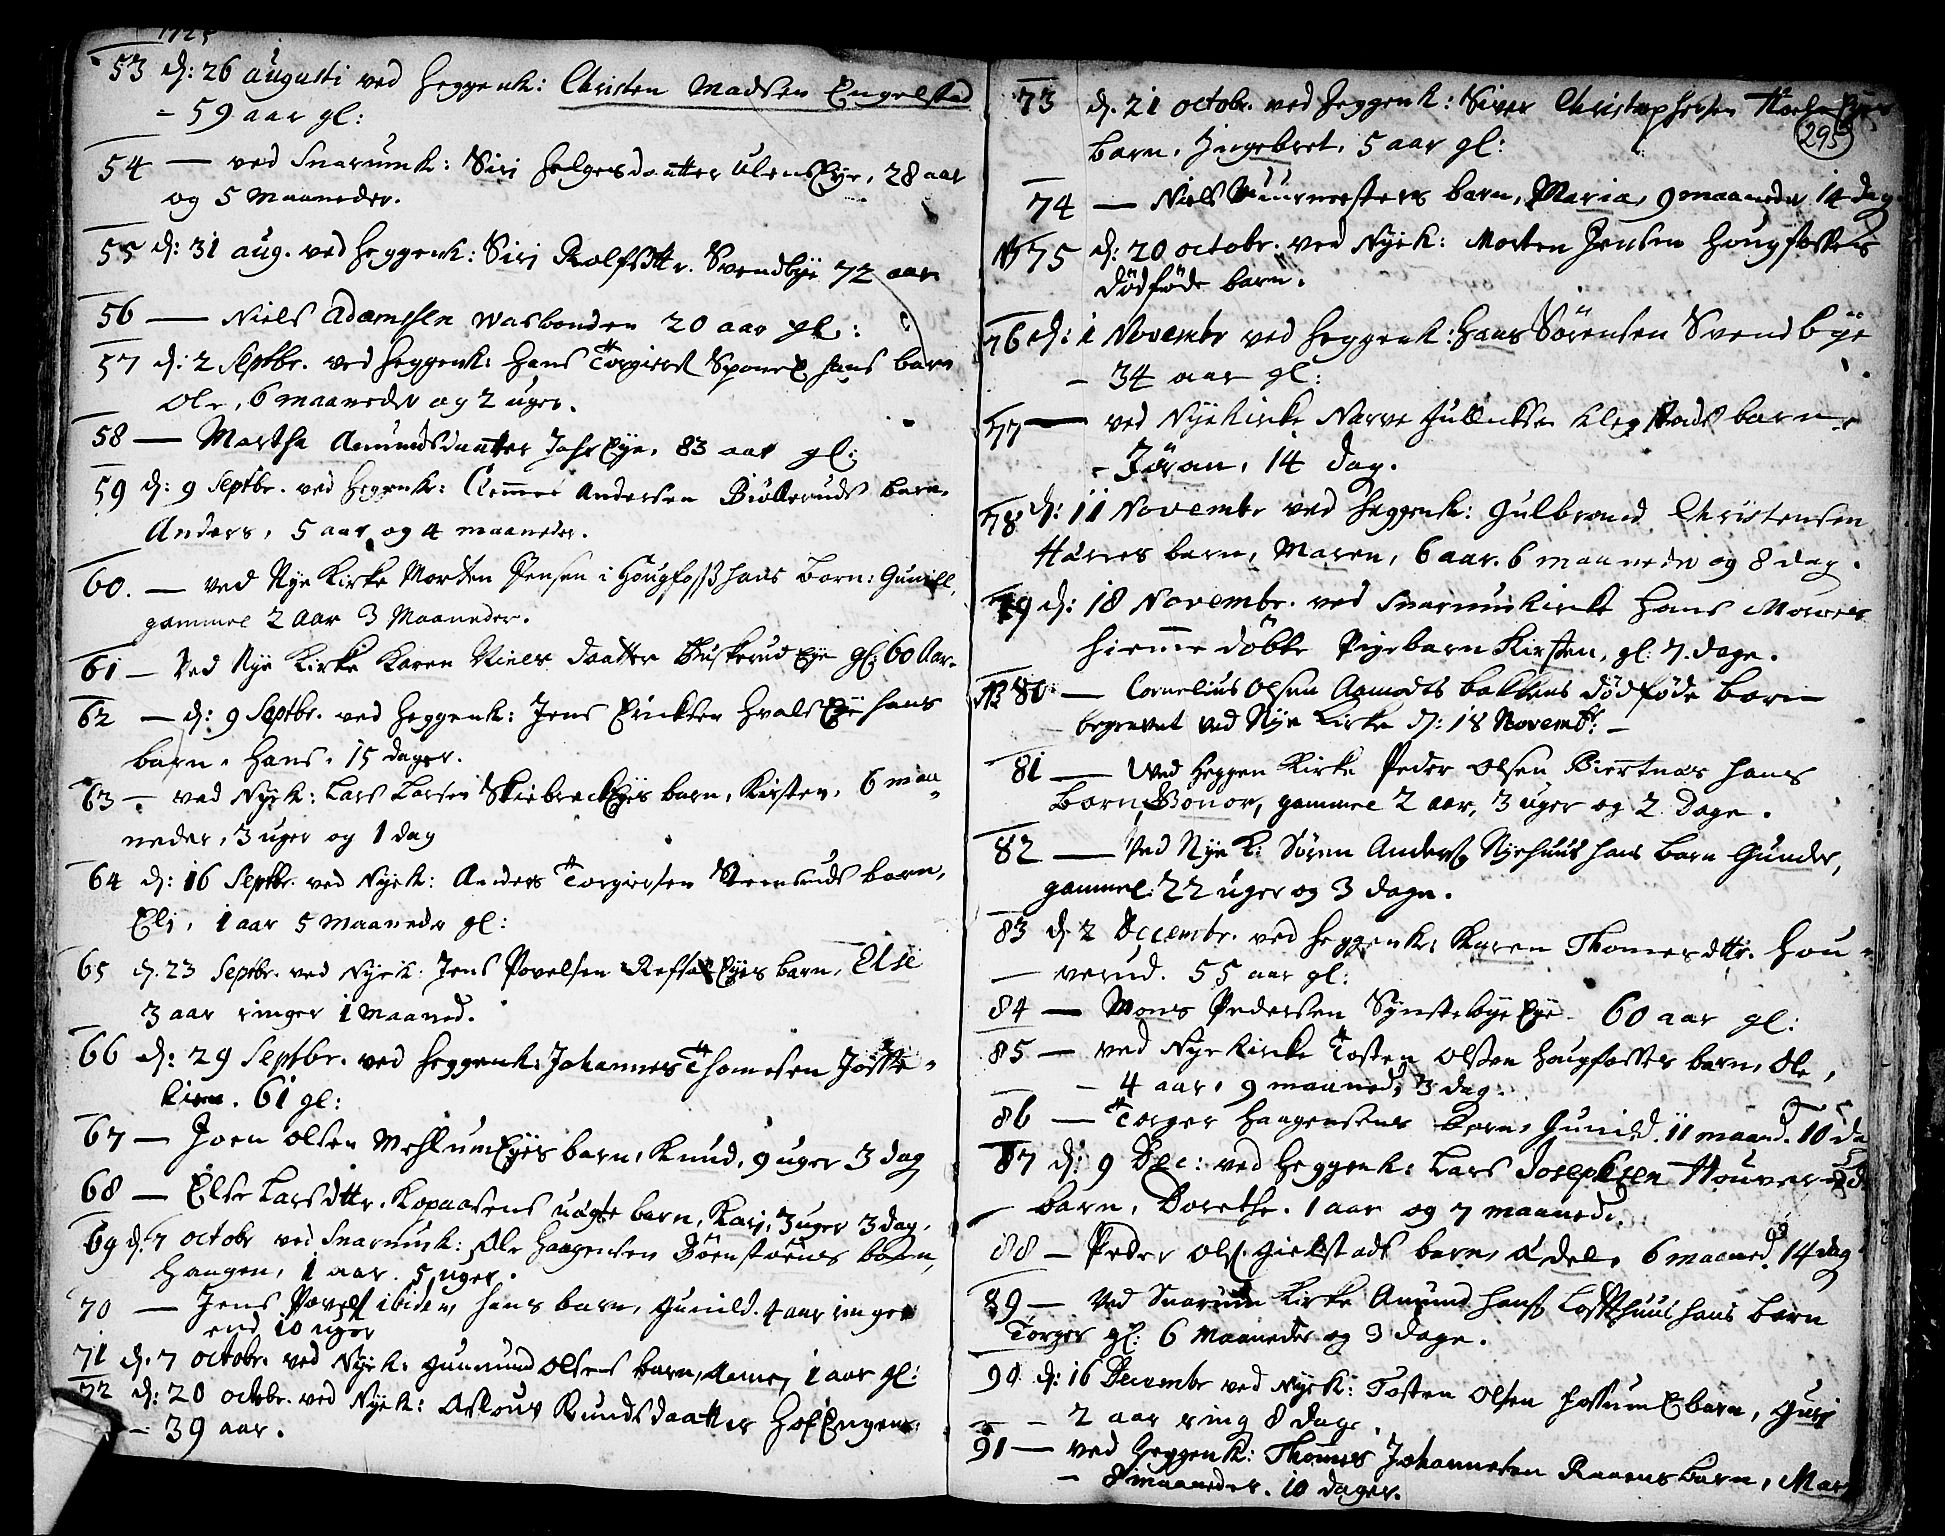 1725
53 d: 26 augusti ved Heggenk: Christen Madsen Engelstad
- 59 aar gl:
54 — ved Snarumk: Siri Helgesdaatter Ulens Eye, 28 aar
og 5 Maaneder.
55 d: 31 aug. ved Heggenk: Siri Rolfsdttr. Svendbye 72 aar
56 — Niels Adamssen Wasbonden 20 aar gl:
57 d: 2 Septbr. ved Heggenk: Hans Torgiers. SponeE hans barn
Ole, 6 maaneder og 2 uger.
58 — Martha Amundsdaatter Jahr Eye, 83 aar gl:
59 d: 9 Septbr. ved Heggenk: Clemmet Andersen Biøllerud barn,
Anders, 5 aar og 4 maaneder.
60. — ved Nye Kirke Morten Jensen i Hougfoss hans barn: Gunild,
gammel 2 aar 3 Maaneder.
61 — Ved Nye Kirke Karen Niels daatter Buskerud Eye gl: 60 Aar.
62 — d: 9 Septbr. ved Heggenk: Jens Ericksen Hvals Eye hans
barn, Hans, 15 dager.
63 — ved Nyek: Lars Larsen Skiebreck Eyes barn, Kirsten, 6 maa-
neder, 3 uger og 1 dag
64 d: 16 Septbr. ved Nyek: Anders Torgiersen barn,
Eli, 1 aar 5 maaneder gl:
65 d. 23 Septbr. ved Nyek: Jens Povelsen Refsal Eyes barn, Else
3 aar ringer 1 Maaned.
66 d: 29 Septbr. ved Heggenk: Johannes Thomesen
61 gl:
67 — Joen Olsen Mehlum Eyes barn, Knud, 9 uger 3 dag
68 — Else Larsdttr. Kopaasens uägte barn, Kari, 3 uger 3 dag.
69 d. 7 octobr ved Snarumk: Ole Haagensen barn,
Haagen, 1 aar. 5 uger.
70 — Jens Povels. ibidem, hans barn, Gunild. 4 aar ringer
end 10 uger
71 d. 7 octobr. ved Nyek: Gunmund Olsens barn, Anne, 1 aar gl:
72 d: 20 octobr. ved Nyek: Asloug Knudsdaatter HofEngen
- 39 aar.
73 d. 21 octobr. ved Heggenk: Siver Christophersen
293
barn, Ingebret, 5 aar gl:
74 — Niels Muurmesters barn, Maria, 9 maaneder 14 dag
NB 75 d: 20 octobr. ved Nyek: Morten Jensen Hougfosses
dødføde barn.
76 d: 1 Novembr ved Heggenk: Hans Sørensen Svendbye
- 34 aar gl:
77 — ved Nyekirke Narve Gullicksen Klegstads barn
- Jøran, 14 dag.
78 d: 11 Novembr ved Heggenk: Gulbrand Christensen
barn, Maren, 6 aar. 6 maaneder og 8 dag.
79 d: 18 Novembr. ved Snarumkirke Hans
hiemme døbte Pigebarn Kirsten, gl: 7. dage.
NB 80 — Cornelius Olsen Aamodts bakkens dødføde barn
begravet ved Nye Kirke d: 18 Novemb: —
81 — Ved Heggen Kirke Peder Olsen Biertnæs hans
barn, Bonor, gammel 2 aar, 3 uger og 2 Dage.
82 — Ved Nye K: Søren Anders. Nyehuus hans barn Gunder,
gammel: 22 uger og 3 dage.
83 d. 2 Decembr. ved Heggenk: Karen Thomesdttr. Hou-
— verud. 55 aar gl:
84 — Mons Pedersen Synstebye Eye. 60 aar gl:
85 — ved Nye Kirke Tosten Olsen Hougfosses barn, Ole,
- 4 aar, 9 maaned, 3 dag.
86 — Torger Haagensens barn, Gunild. 11 maaned. 10 da
87 d: 9 Dec: ved Heggenk: Lars Josephsen Houverud
barn, Dorethe. 1 aar og 7 maaneder.
88 — Peder Ols. Gielstads barn, Ädel. 6 maaned. 14 dag
89 — Ved Snarum Kirke Amund Hans. Lofthuus hans barn
Torger gl: 6 Maaneder og 3 dage.
90 d: 16 Decembr ved Nyek: Tosten Olsen Fossum E barn, Guri
- 2 aar ring 8 dag.
91 — ved Heggenk: Thomes Johannesen Raaens barn, Mar
- 8 maaneder. 10 dager.